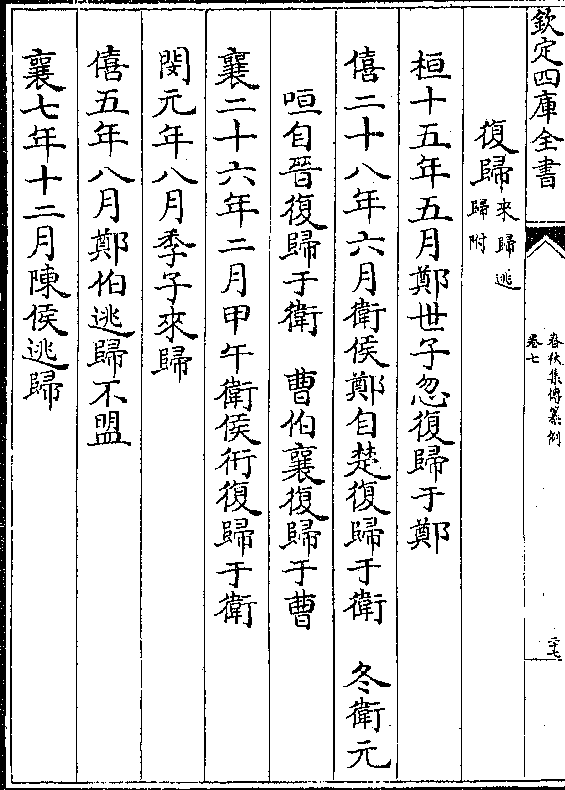 欽定四庫全書
春秋集傳纂例
卷七
二十七
復歸來歸逃歸附
桓十五年五月鄭世子忽復歸于鄭
僖二十八年六月衛侯鄭自楚復歸于衛　冬衛元
咺自晉復歸于衛　曹伯襄復歸于曹
襄二十六年二月甲午衛侯衎復歸于衛
閔元年八月季子來歸
僖五年八月鄭伯逃歸不盟
襄七年十二月陳侯逃歸